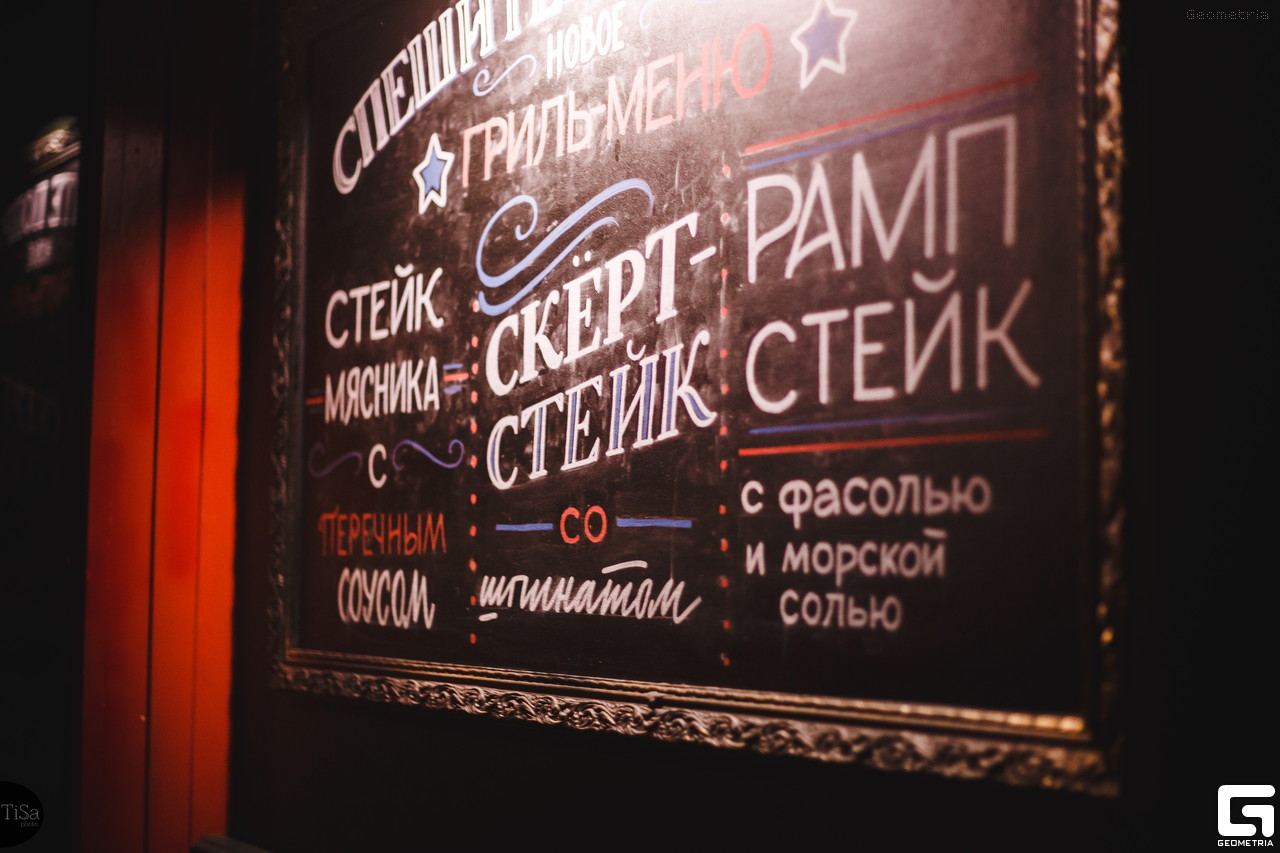 Geometria
НОВОЕ
ГРИЛЬ-МЕНЮ
СТЕЙК
МЯСНИКА
С
ПЕРЕЧНЫМ
СОУСОМ
СКЁРТ-
СТЕЙК
СО
шпинатом
РАМП
СТЕЙК
с фасолью
и морской
солью
TiSa
photo
GEOMETRIA